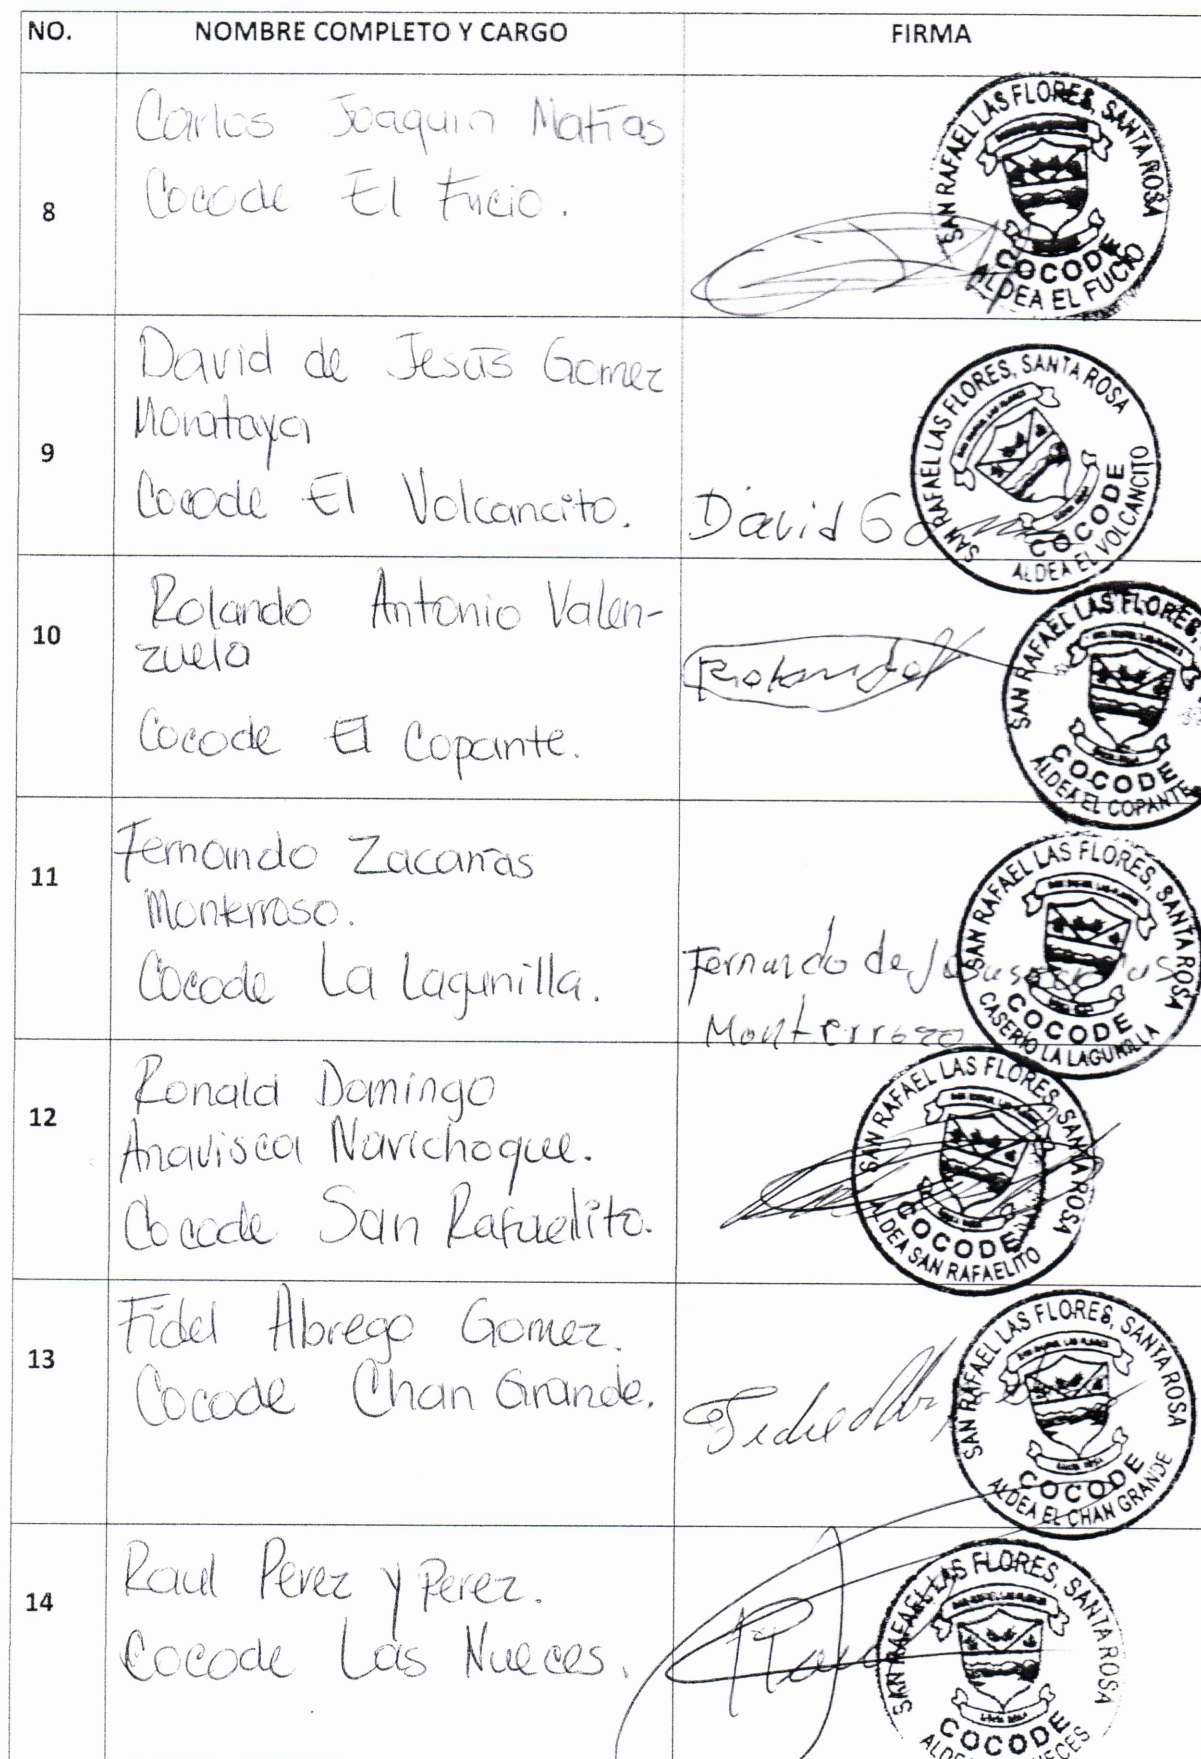 NO. NOMBRE COMPLETO Y CARGO FIRMA
8
Carlos Joaquin Matías
Cocode El Fucio.
SAN RAFAEL LAS FLORES, SANTA ROSA
COCODE
ALDEA EL FUCIO
9
David de Jesús Gomez
Morataya
Cocode El Volcancito.
David G
SAN RAFAEL LAS FLORES, SANTA ROSA
COCODE
ALDEA EL VOLCANCITO
10
Rolando Antonio Valen-
zuela
Cocode El Copante.
Rolando
SAN RAFAEL LAS FLORES,
COCODE
ALDEA EL COPANTE
11
Fernando Zacarías
Monterroso.
Cocode La Lagunilla.
Fernando de Jesus
Monterrozo
SAN RAFAEL LAS FLORES, SANTA ROSA
COCODE
CASERIO LA LAGUNILLA
12
Ronald Domingo
Anavisca Navichoque.
Cocode San Rafaelito.
SAN RAFAEL LAS FLORES, SANTA ROSA
COCODE
ALDEA SAN RAFAELITO
13
Fidel Abrego Gomez.
Cocode Chan Grande.
SAN RAFAEL LAS FLORES, SANTA ROSA
COCODE
ALDEA EL CHAN GRANDE
14
Raul Perez y Perez.
Cocode Las Nueces.
SAN RAFAEL LAS FLORES, SANTA ROSA
COCODE